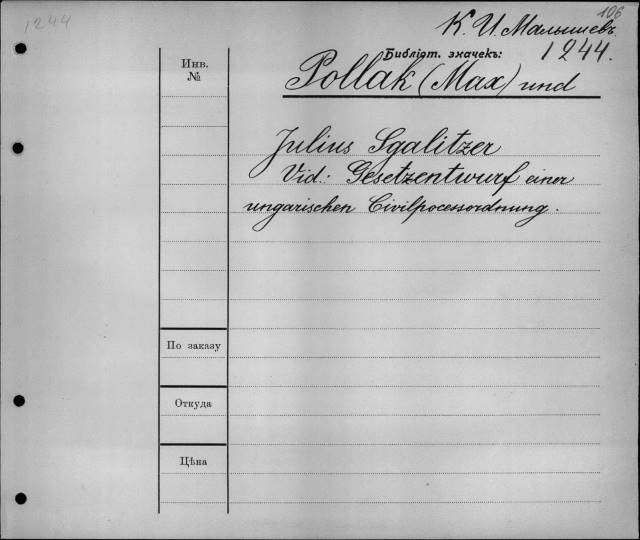 1244
106
К. И. Малышевъ
Библіот. значекъ:
1244.
Инв.
№
Pollak (Max) und
Julius Sgalitzer
Vid.: Gesetzentwurf einer
ungarischen Civilpocessordnung.
По заказу
Откуда
Цѣна